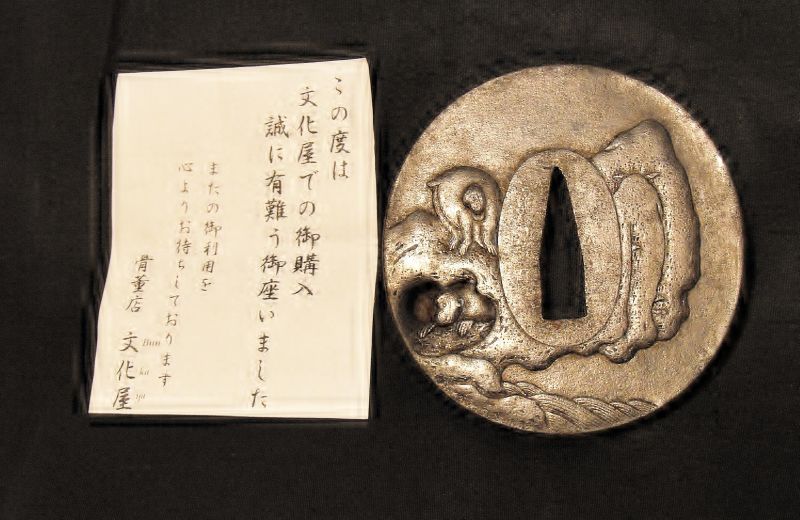 この度は
文化屋での御購入
誠に有難う御座いました
またの御利用を
心よりお待ちしております
骨董店 文化屋
Bun
ka
ya